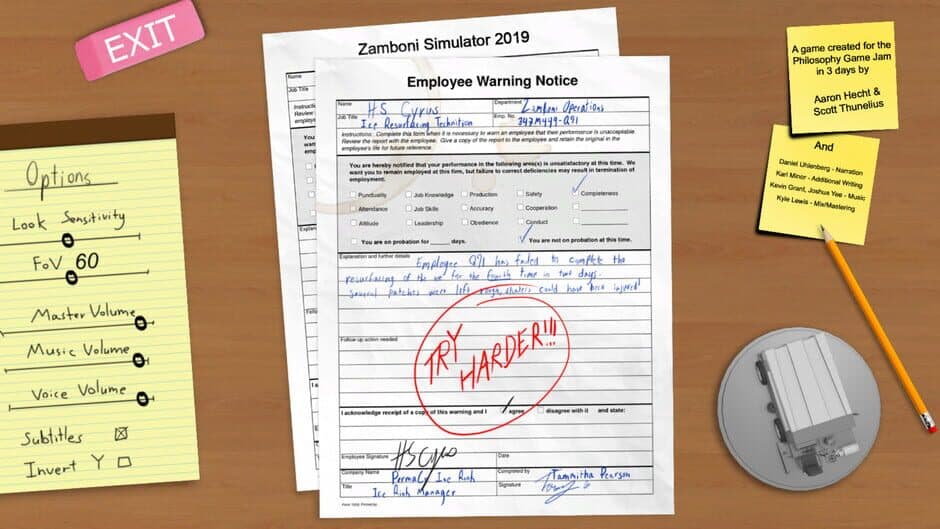 EXIT
Options
Look Sensitivity
FoV 60
Master Volume
Music Volume
Voice Volume
Subtitles
Invert Y
Zamboni Simulator 2019
Name
Job Title
Employee Warning Notice
Name H.S. Cyrus Department Zamboni Operations
Job Title Ice Resurfacing Technition Emp. No. 347M449-Q91
Instructions: Complete this form when it is necessary to warn an employee that their performance is unacceptable.
Review the report with the employee. Give a copy of the report to the employee and retain the original in the
employee's life for future reference.
You are hereby notified that your performance in the following area(s) is unsatisfactory at this time. We
want you to remain employed at this firm, but failure to correct deficiencies may result in termination of
employment.
Punctuality Job Knowledge Production Safety Completeness
Attendance Job Skills Accuracy Cooperation
Attitude Leadership Obedience Conduct
You are on probation for days. You are not on probation at this time.
Explanation and further details Employee Q91 has failed to complete the
resurfacing of the ice for the fourth time in two days.
Several patches were left rough, skaters could have been injured
Follow-up action needed
TRY
HARDER!!!
I acknowledge receipt of a copy of this warning and I agree disagree with it and state:
Employee Signature Date
Company Name PermaCo Ice Rink Completed by Tammitha Pearson
Title Ice Rink Manager Signature
A game created for the
Philosophy Game Jam
in 3 days by
Aaron Hecht &
Scott Thunelius
And
Daniel Uhlenberg - Narration
Karl Minor - Additional Writing
Kevin Grant, Joshua Yee - Music
Kyle Lewis - Mix/Mastering